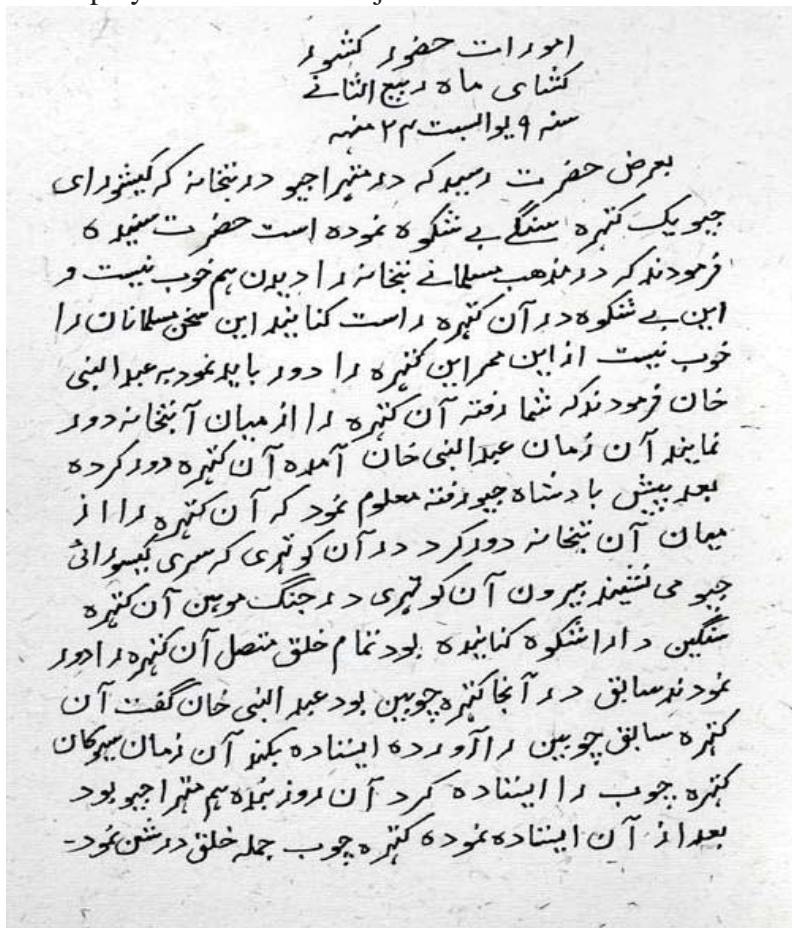 امورات حضور کشور
کشای ماه ربیع الثانی
سنه ۹ یوالبست ۲۳ منهه
بعرض حضرت رسید که در متهرا جیو در بتخانه که کیشورای
جیو یک کتهره سنگے بے شکوه نموده است حضرت سنیده
فرمودند که در مذهب مسلمانے بتخانه را دیدن هم خوب نیست و
این بے شکوه در آن کتهره راست کنانیده این سخن مسلمانان را
خوب نیست از این ممر این کتهره را دور باید نمود به عبد النبی
خان فرمودند که شما رفته آن کتهره را از میان آ بتخانه دور
نمایند آن زمان عبد النبی خان آمده آن کتهره دور کرده
بعد پیش بادشاه جیو رفته معلوم نمود که آن کتهره را از
میان آن بتخانه دور کرد در آن کوتهری که سری کیسورائی
جیو می نشیند بیرون آن کوتهری در جنگ موہن آن کتهره
سنگین داراشکوه کنانیده بود تمام خلق متصل آن کتهره را دور
نمودند سابق در آنجا کتهره چوبین بود عبد النبی خان گفت آن
کتهره سابق چوبین را آورده ایستاده بکند آن زمان سیوکان
کتهره چوب را ایستاده کرد آن روز بنده هم متهرا جیو بود
بعد از آن ایستاده نموده کتهره چوب جمله خلق درشن نمود۔